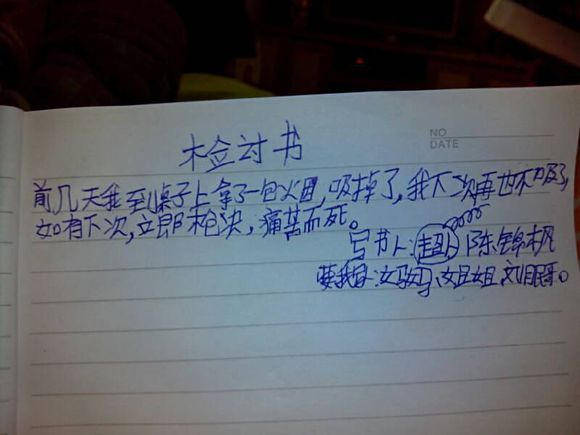 检讨书
NO
DATE
前几天我到桌子上拿了一包火因,吸掉了,我下次再也不吸了,
如有下次,立即枪决,痛苦而死。
写书人: 陈锦帆
要我写:妈妈、姐姐、刘眼哥。